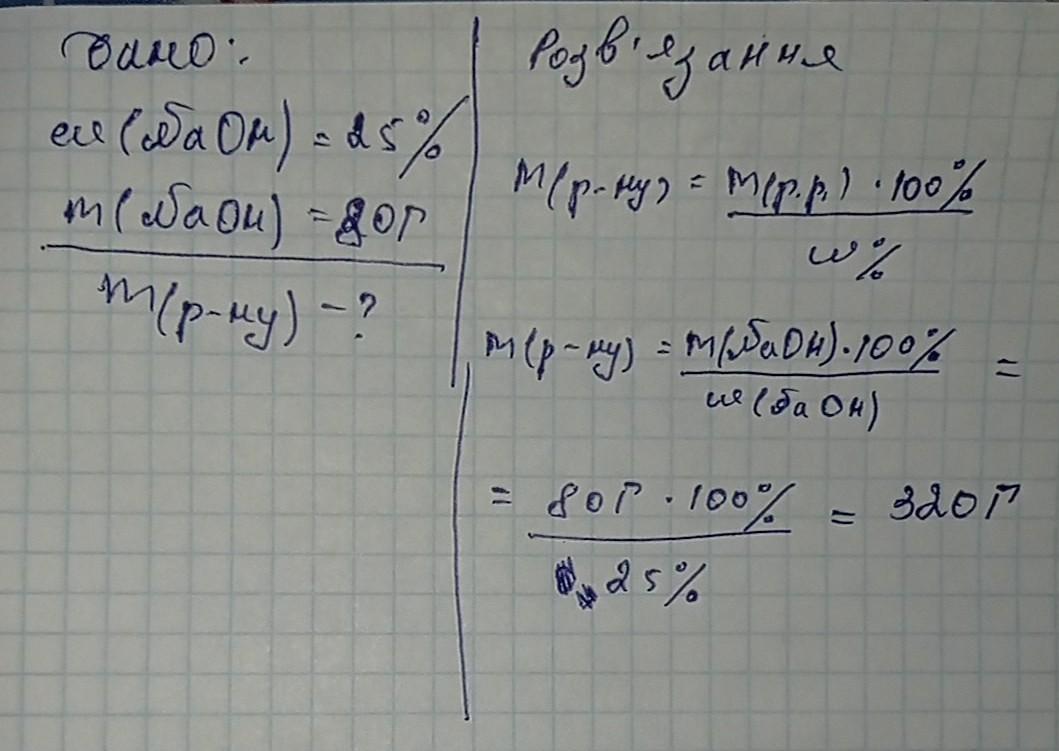 Дано:
ω(NaOH) = 25%
m(NaOH) = 80г
m(р-ну) - ?
Розв'язання
m(р-ну) = m(р.р.) · 100%
ω%
m(р-ну) = m(NaOH) · 100% =
ω(NaOH)
= 80г · 100% = 320г
25%